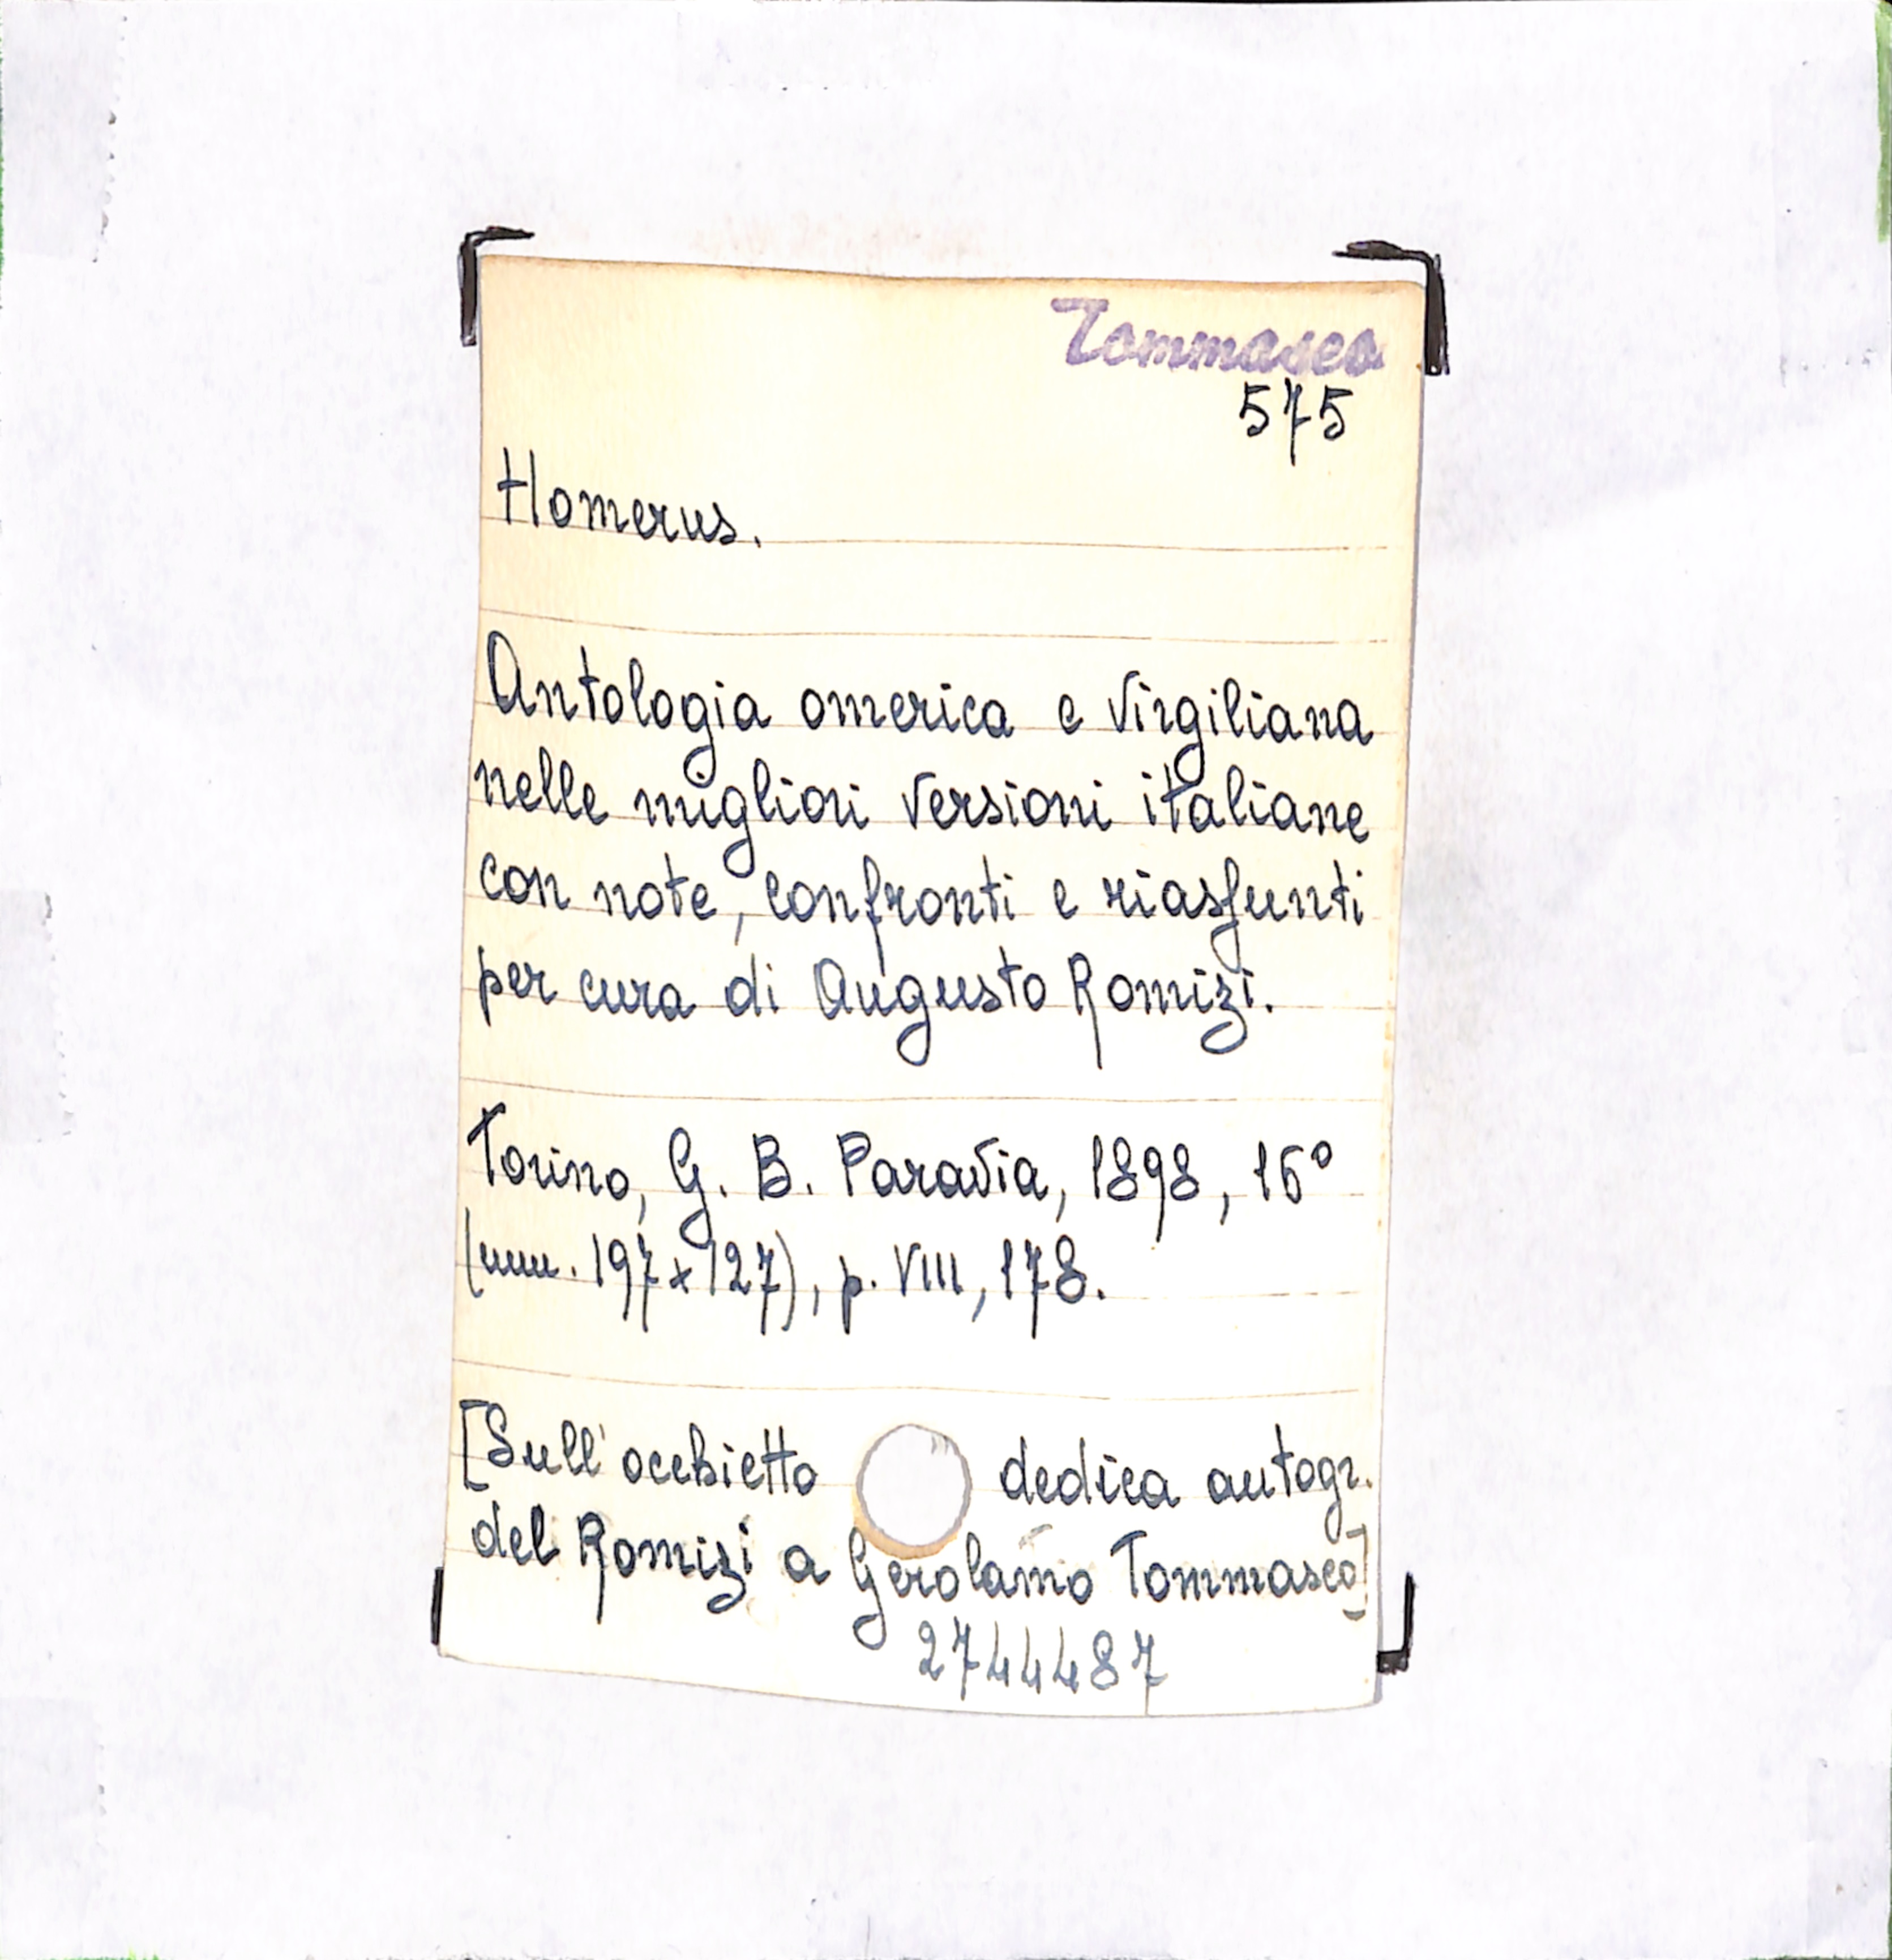 Tommaseo
575
Homerus.
Antologia omerica e virgiliana
nelle migliori versioni italiane
con note, confronti e riassunti
per cura di Augusto Romizi.
Torino, G. B. Paravia, 1898, 16°
(mm. 197x127), p. VIII, 178.
[Sull'occhietto dedica autogr.
del Romizi a Gerolamo Tommaseo]
2744487